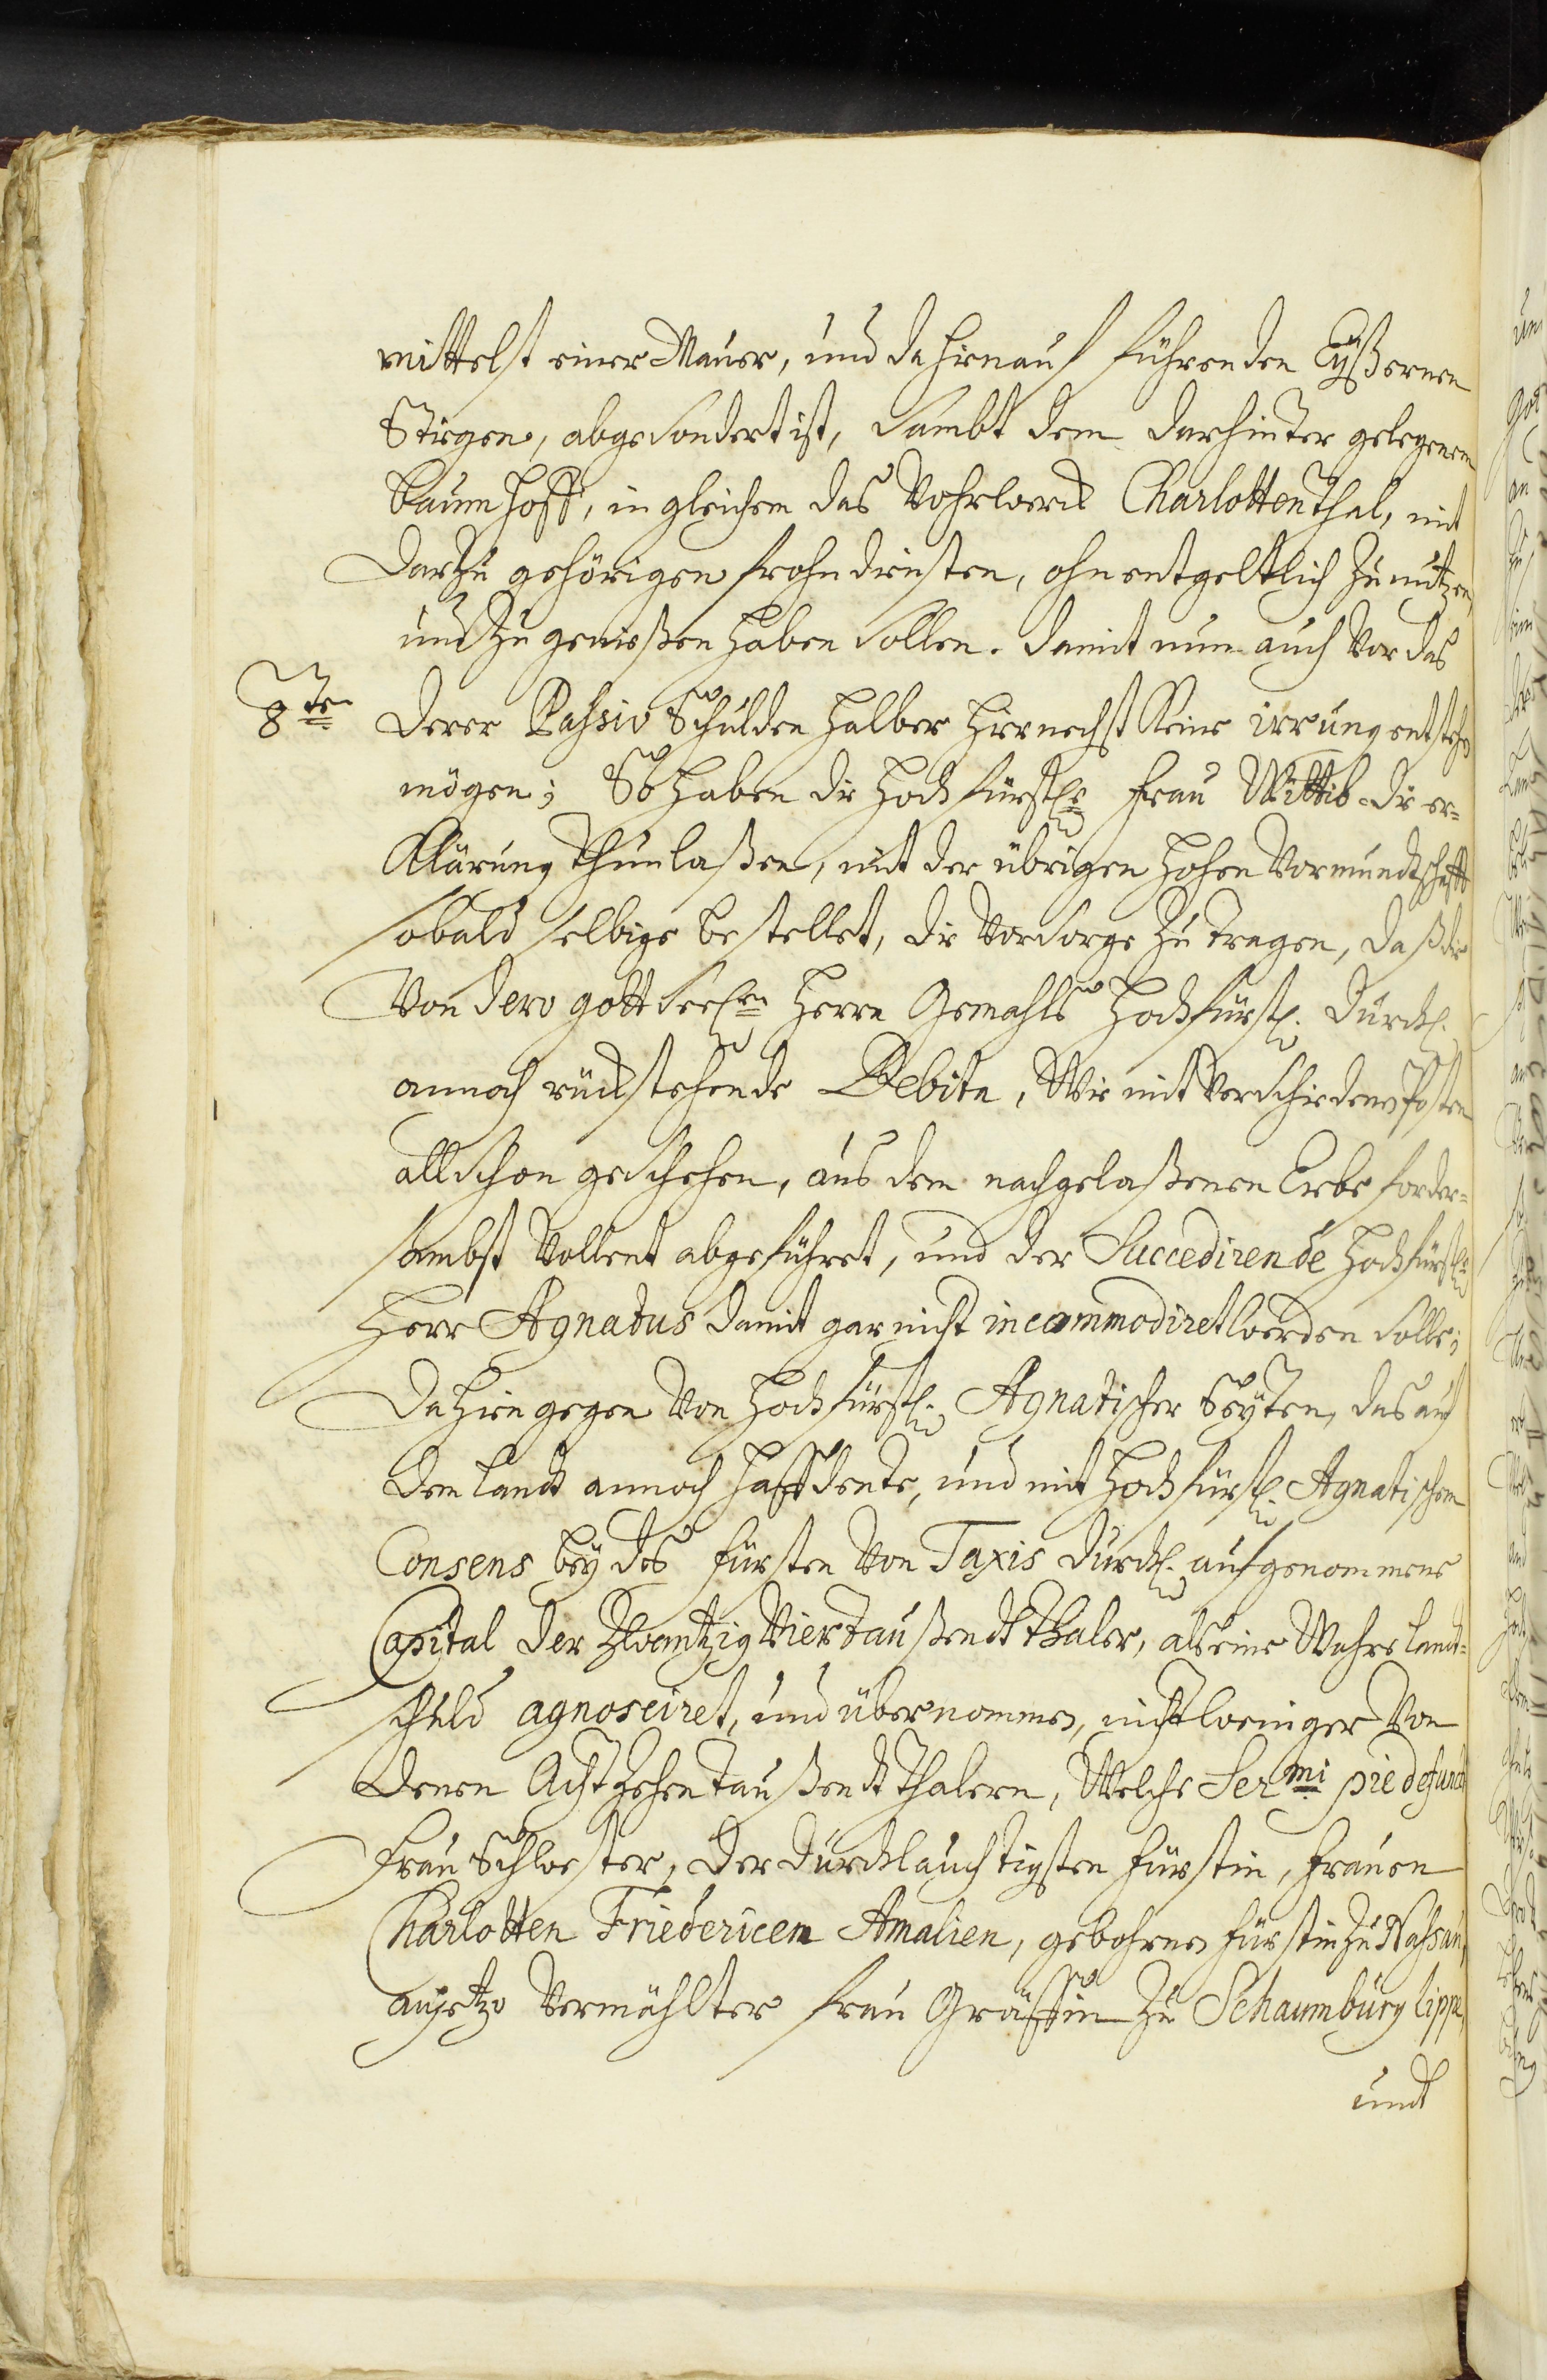 mittelst einer Mauer, und dahienauf führenden Eyßernen
Stiegen, abgesondert ist, sambt dem darhinter gelegenem
baumhoff, ingleichem das Vohrwerck Charlottenthal, mit
dartzu gehörigen frohndiensten, ohnentgeltlich zu nutzen,
und zu genießen haben sollen. damit nun auch Vor das
8te derer Passiv Schulden halber hiernechst Keine irrung entstehen
mögen; So haben die hochfürstle frau Wittib die er-
Klärung thun laßen, mit der übrigen hohen Vormundtschafft
sobald selbige bestellet, die Vorsorge zu tragen, daß die
Von dero gottseeln Herrn Gemahls hochfürstl. Durchl.
annoch rückstehende Debita, Wie mit Verschiedenen Posten
allschon geschehen, aus dem nachgelaßenen Erbe forder-
sambst Vollent abgeführet, und der Succedirende hochfürstle
Herr Agnatus damit gar nicht incommodiret werden solle;
dahiengegen Von hochfürstl. Agnatischer Seyten, das auf
dem landt annoch hafftente, und mit hochfürstl. Agnatischem
Consens bey des fürsten Von Taxis Durchl. aufgenommene
Capital der Zwantzig Viertaußendt thaler, als eine Wahre landt-
schuld agnosciret, und übernommen, nicht weniger Von
denen Achtzehentaußendt thalern, Welche Sermi pie defuncti
frau Schwester, der durchlauchtigsten fürstin, frauen
Charlotten Friedericen Amalien, gebohrnen fürstin zu Nassau,
anjetzo Vermählter frau Gräffin zu Schaumburg lippe,
undt